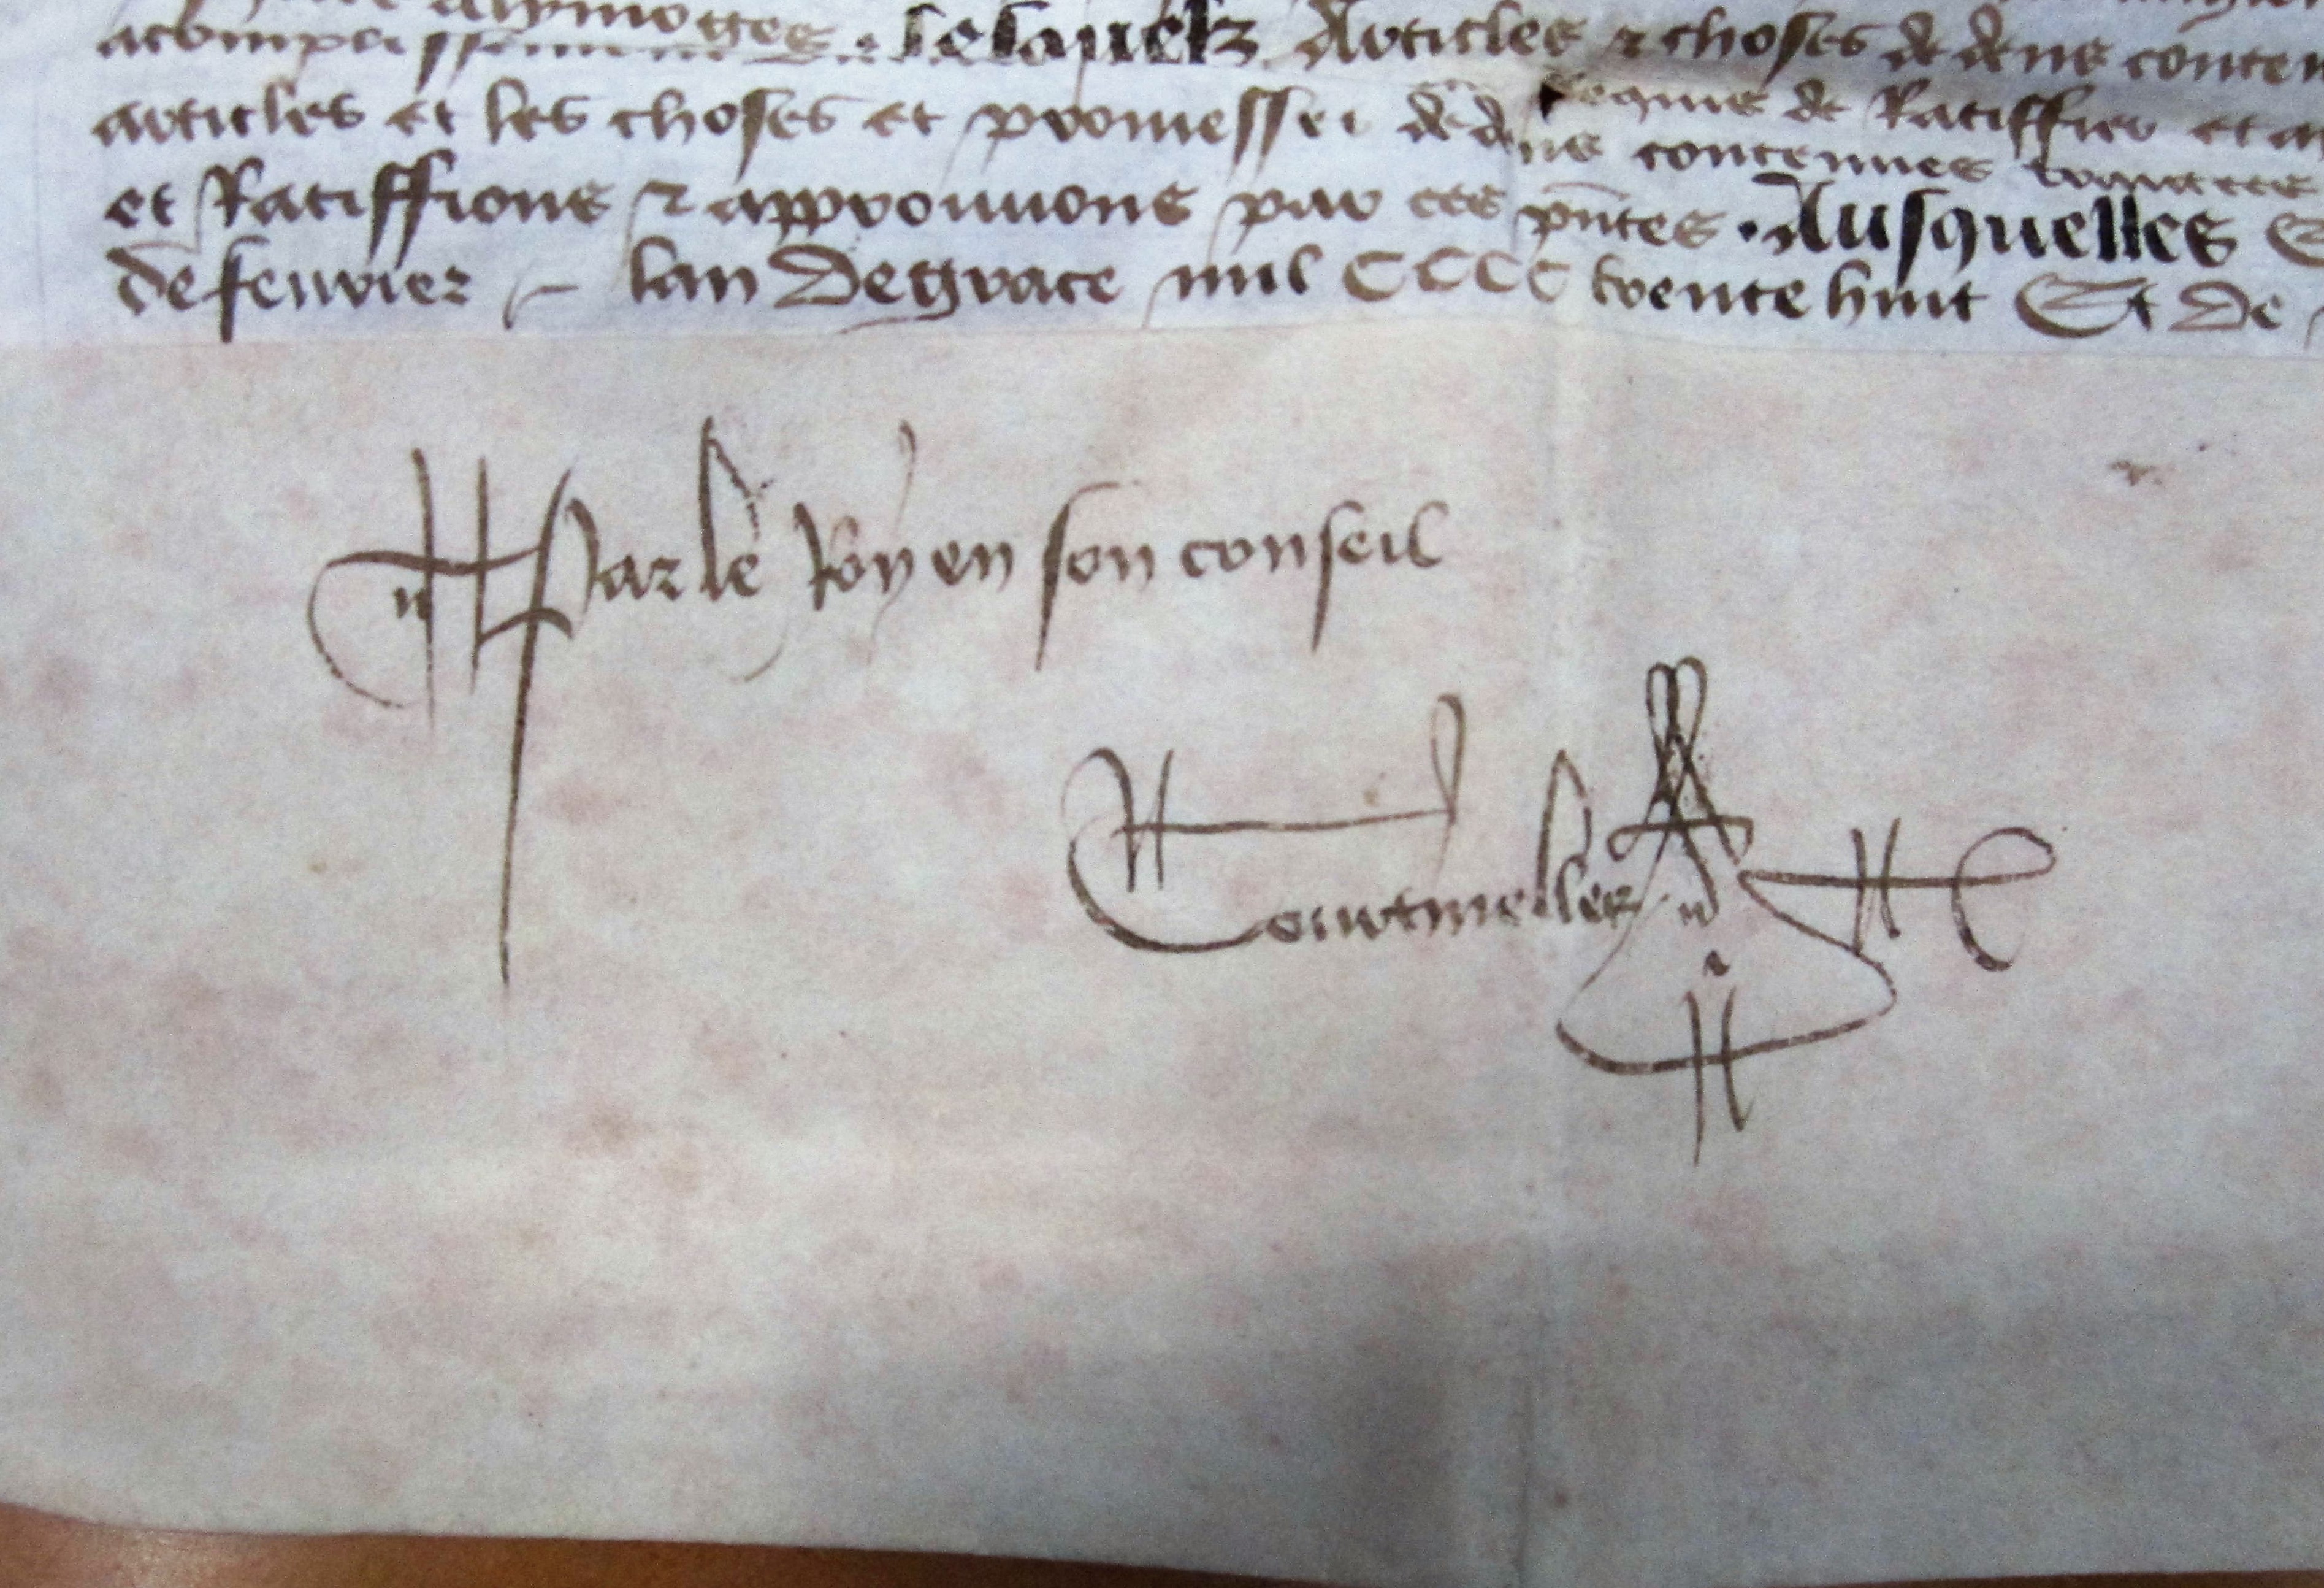 Lesquelz Articles et choses dedens conten
articles et les choses et promesses dedens contenues
requis de Ratiffier et a
et Ratiffions et approuvons par ces pñtes. Ausquelles
de fevrier lan de grace mil CCCC trente huit Et de
Par le Roy en son conseil
Courtineller